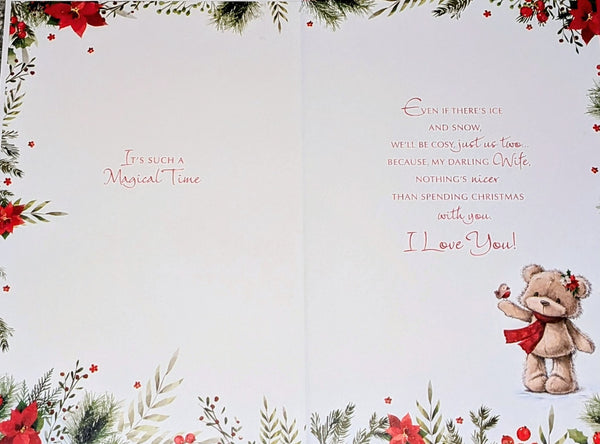 IT'S SUCH A
Magical Time
EVEN IF THERE'S ICE
AND SNOW,
WE'LL BE COSY, just us two...
BECAUSE, MY DARLING Wife,
NOTHING'S nicer
THAN SPENDING CHRISTMAS
with you.
I Love You!